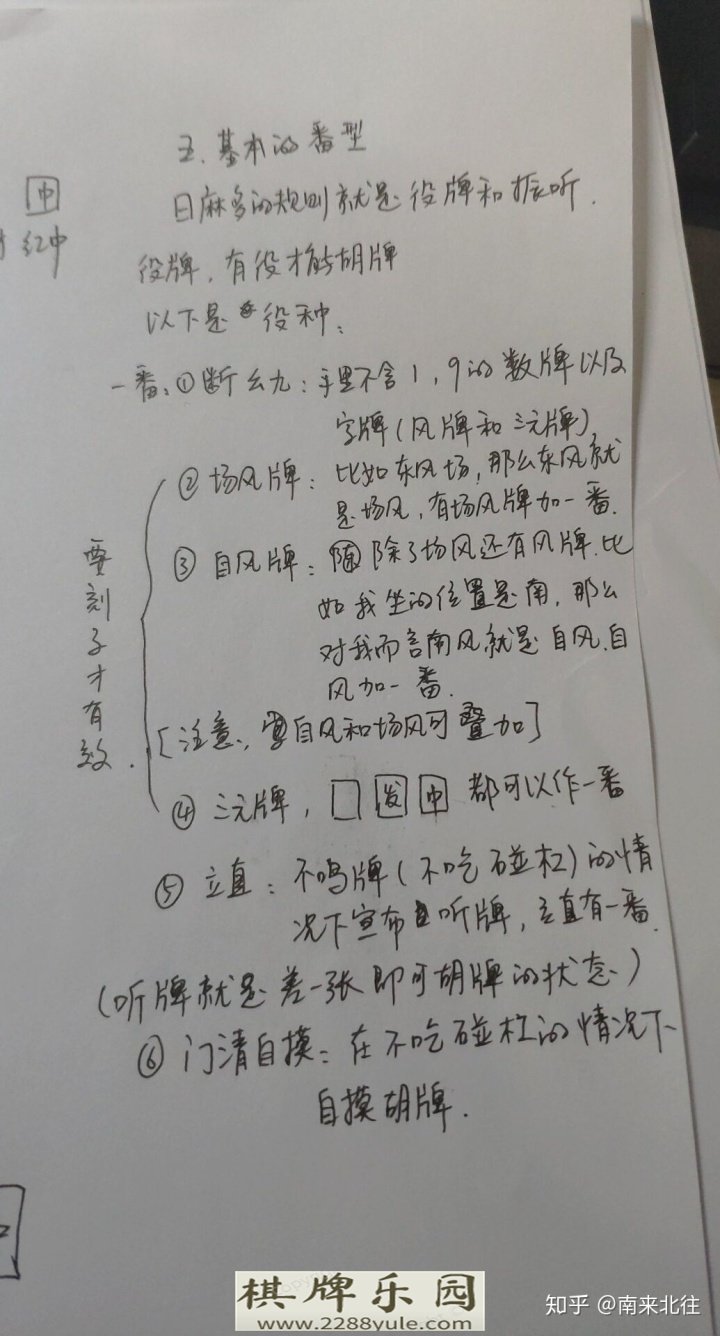 五.基本的番型
中
红中
日麻多的规则就是役牌和振听.
役牌,有役才能胡牌
以下是役种:
一番:①断幺九:手里不含1,9的数牌以及
字牌(风牌和三元牌)
②场风牌:比如东风场,那么东风就
是场风,有场风牌加一番.
③自风牌:除了场风还有风牌.比
如我坐的位置是南,那么
对我而言南风就是自风.自
风加一番.
[注意:自风和场风可叠加]
要刻子才有效.
④三元牌,发中都可以作一番
⑤立直:不鸣牌(不吃碰杠)的情
况下宣布听牌,立直有一番.
(听牌就是差一张即可胡牌的状态)
⑥门清自摸:在不吃碰杠的情况下
自摸胡牌.
棋牌乐园
www.2288yule.com
知乎 @南来北往